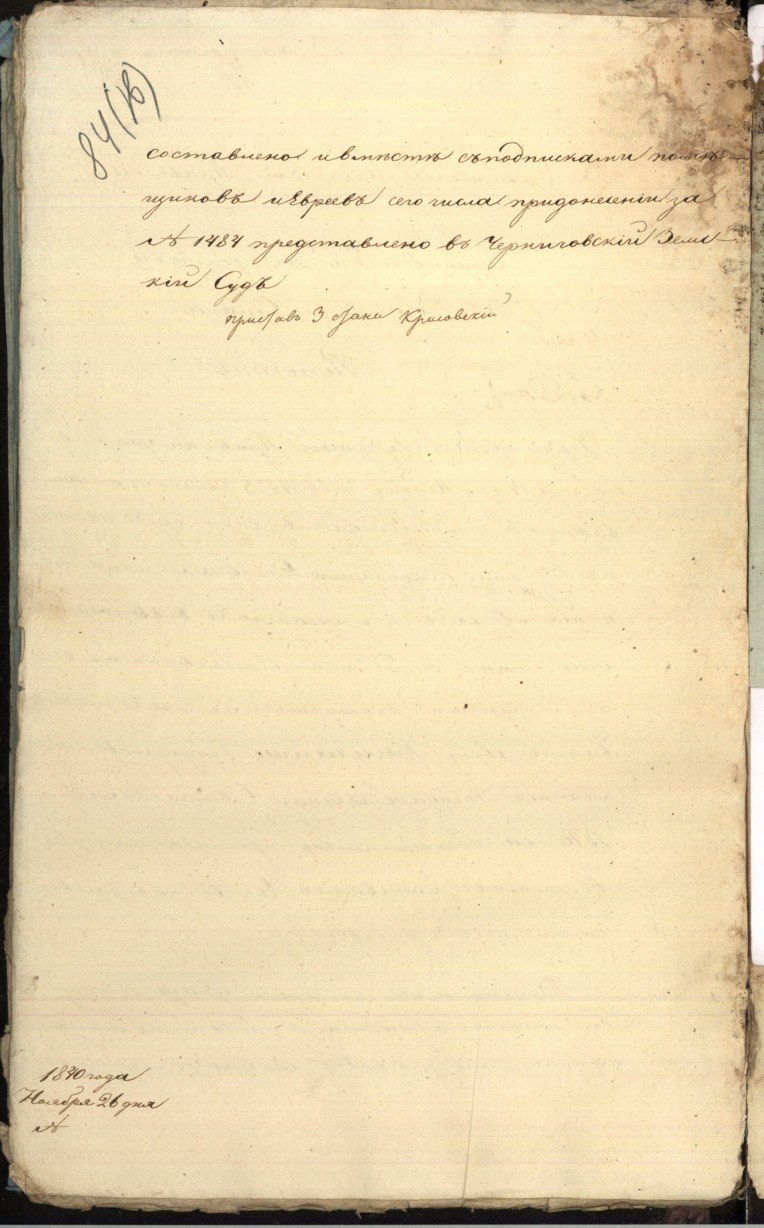 84 (об)
составлено и вместѣ съ подписками помѣ-
щиковъ и Евреевъ сего числа при донесеніи за
№ 1484 представлено въ Черниговскій Земс-
кій Судъ
Приставъ 3 стана
1840 года
Ноября 26 дня
№